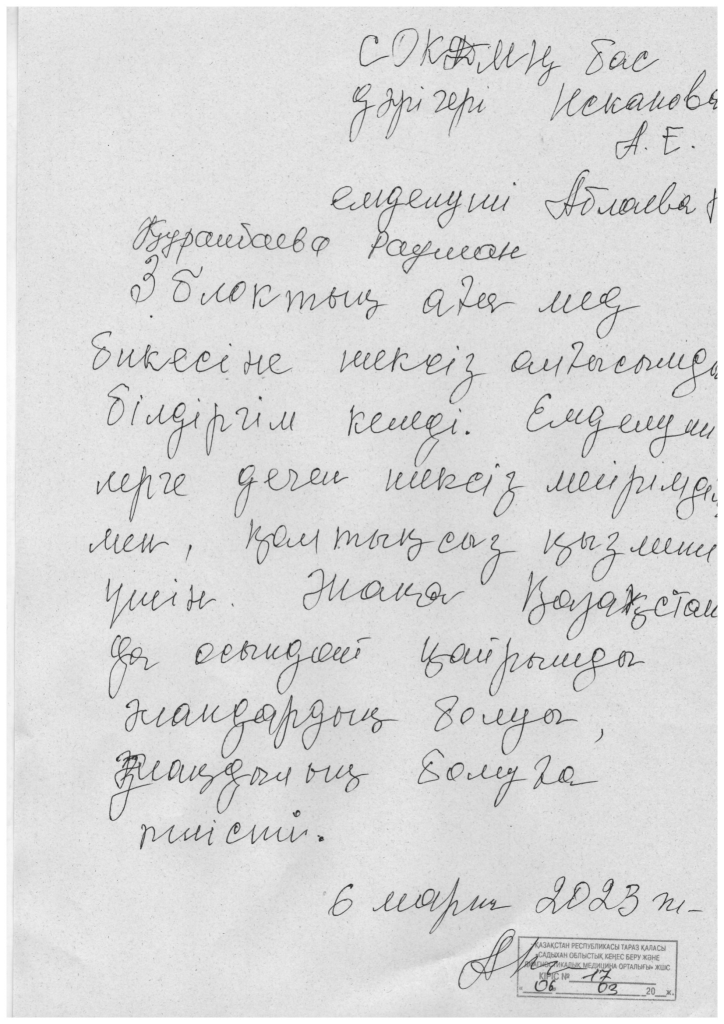 СОКДМЦ бас
дәрігері Искакова
А. Е.
емделуші Аблаева
Құрашбаева Раушан
3 блоктың аға мед
бикесіне шексіз алғысымды
білдіргім келеді. Емделуші
лерге деген шексіз мейірімді
мен, қалтықсыз қызметі
үшін. Жаңа Қазақстан
да осындай қайрымды
жандардың болуы,
заңдылық болуға
тиісті.
6 март 2023 ж-
ҚАЗАҚСТАН РЕСПУБЛИКАСЫ ТАРАЗ ҚАЛАСЫ
«САДЫХАН ОБЛЫСТЫҚ КЕҢЕС БЕРУ ЖӘНЕ
ДИАГНОСТИКАЛЫҚ МЕДИЦИНА ОРТАЛЫҒЫ» ЖШС
КІРІС № 17
"06" 03 20 ж.